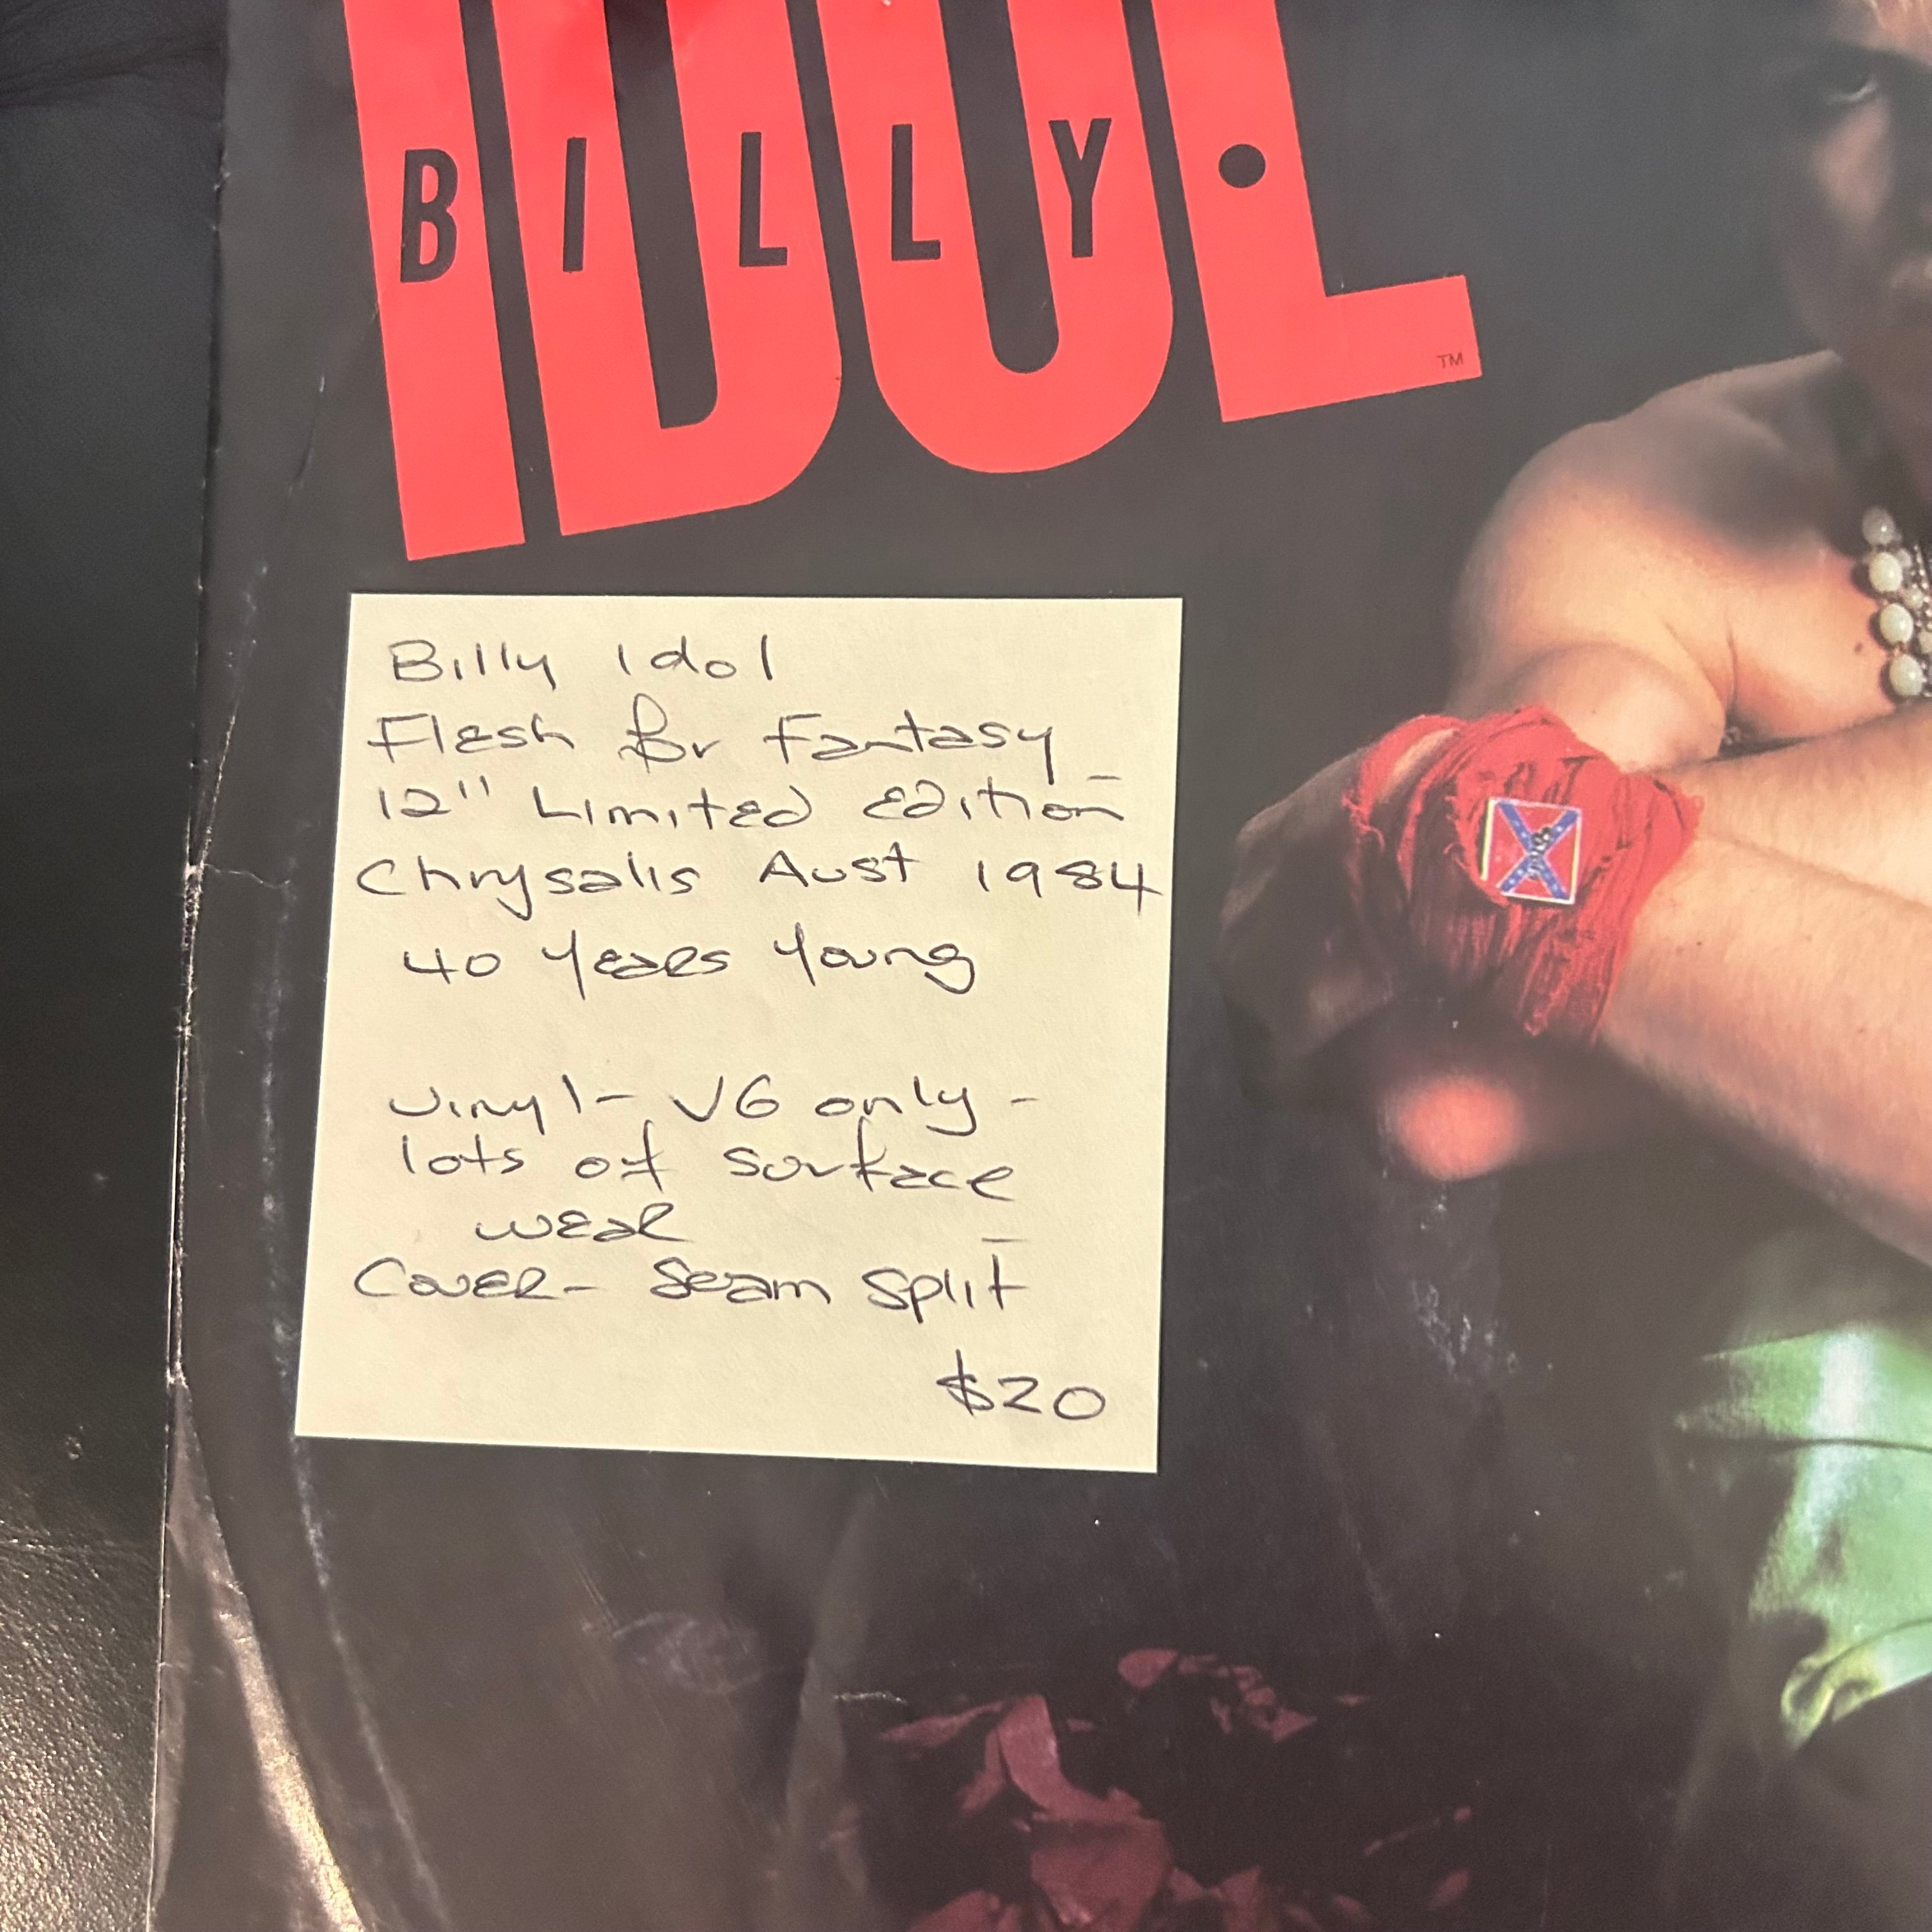 IDOL
BILLY•
TM
Billy Idol
Flesh for Fantasy
12" Limited Edition
Chrysalis Aust 1984
40 Years Young
Vinyl - VG only -
lots of surface
wear
Cover - Seam Split
$20